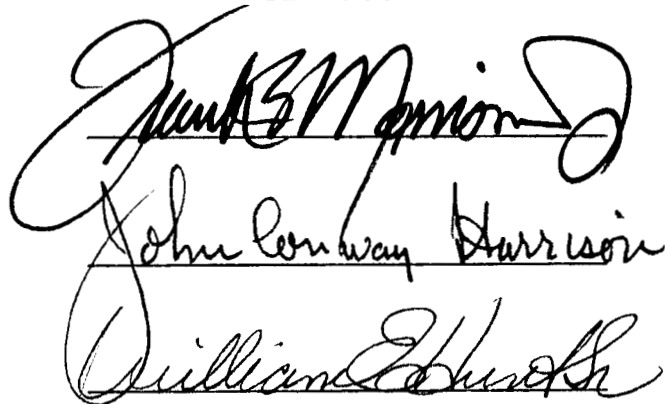 Frank B Morrison Jr
John Conway Harrison
William E Hunt Sr